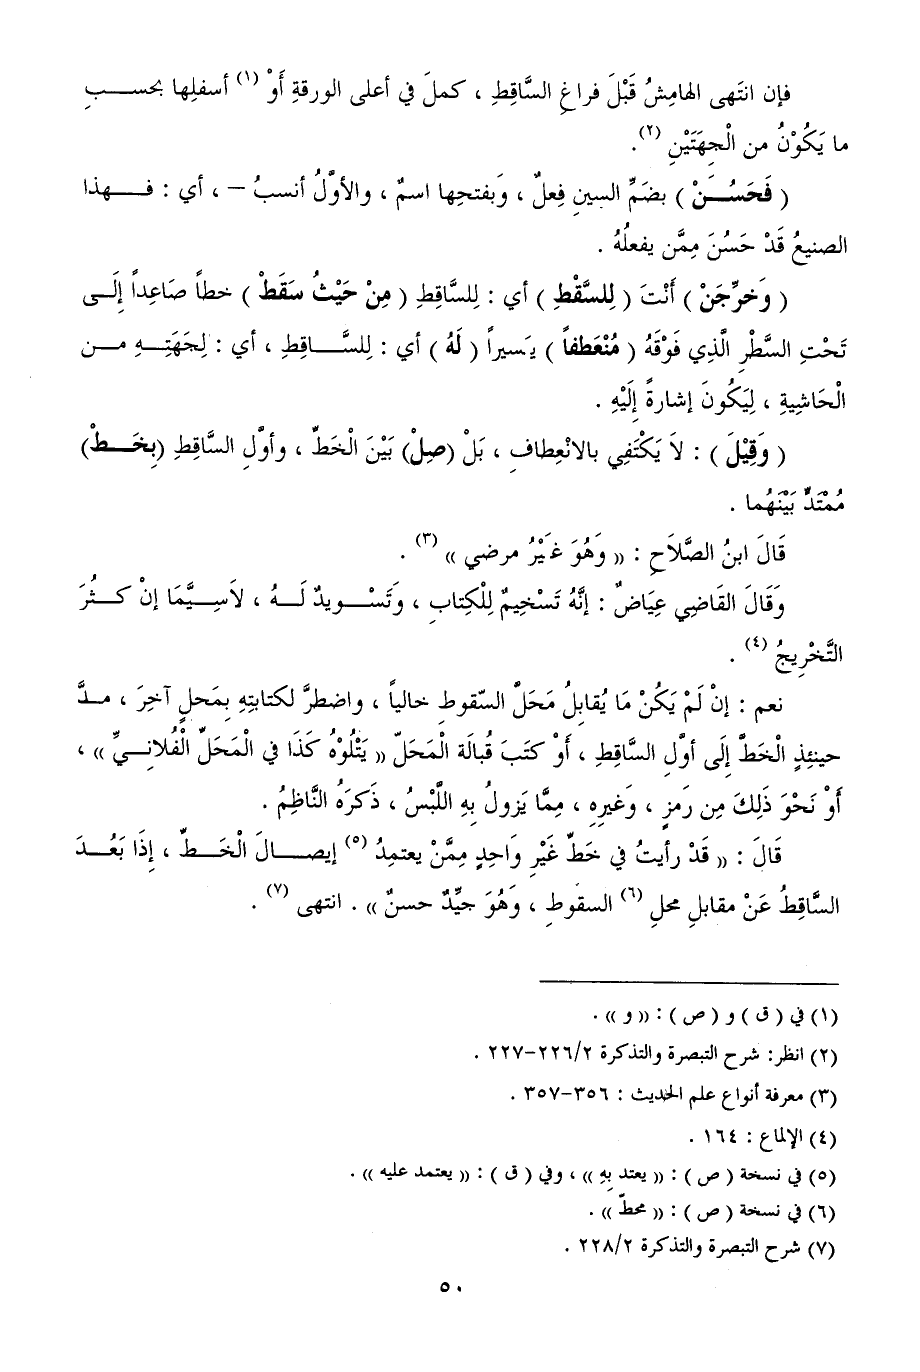 فإن انتَهى الهامِشُ قَبْلَ فراغِ السَّاقِطِ ، كملَ في أعلى الورقةِ أَوْ (١) أسفلِها بحسبِ
ما يَكُوْنُ من الْجِهَتَيْنِ (٢).
( فَحَسُنَنْ ) بضَمِّ السينِ فِعلٌ ، وَبفتحِها اسمٌ ، والأوَّلُ أنسبُ – ، أي : فهذا
الصنيعُ قَدْ حَسُنَ مِمَّن يفعلُهُ .
( وَخرِّجَنْ ) أَنْتَ ( لِلسَّقْطِ ) أي : لِلسَّاقِطِ ( مِنْ حَيْثُ سَقَطْ ) خطاً صَاعِداً إلَى
تَحْتِ السَّطْرِ الَّذِي فَوْقَهُ ( مُنْعَطفاً ) يَسيراً ( لَهُ ) أي : لِلسَّاقِطِ ، أي : لِجَهَتِهِ من
الْحَاشِيةِ ، لِيَكُونَ إشارةً إلَيْهِ .
( وَقِيْلَ ) : لاَ يَكْتَفِي بالانْعِطافِ ، بَلْ (صِلْ) بَيْنَ الْخَطِّ ، وأوَّلِ السَّاقِطِ (بِخَطْ)
مُمْتَدٍّ بَيْنَهُما .
قَالَ ابنُ الصَّلاَحِ : « وَهُوَ غَيْرُ مرضي » (٣) .
وَقَالَ القَاضِي عِيَاضٌ : إنَّهُ تَسْخِيمٌ لِلْكِتابِ ، وَتَسْويدٌ لَهُ ، لاَسِيَّمَا إنْ كثُرَ
التَّخْرِيجُ (٤) .
نعم : إنْ لَمْ يَكُنْ مَا يُقابِلُ مَحَلَّ السّقوطِ خالياً ، واضطرَّ لكتابتِهِ بِمَحلٍ آخرَ ، مدَّ
حينئذٍ الْخَطَّ إلَى أولِ السَّاقِطِ ، أَوْ كتَبَ قُبالَة الْمَحَلّ « يَتْلُوْهُ كَذَا في الْمَحَلِّ الْفُلانيِّ » ،
أَوْ نَحْوَ ذَلِكَ مِن رَمزٍ ، وَغيرِهِ ، مِمَّا يَزولُ بِهِ اللَّبْسُ ، ذَكرَهُ النَّاظِمُ .
قَالَ : « قَدْ رأيتُ في خَطِّ غَيْرِ وَاحِدٍ مِمَّنْ يعتمِدُ (٥) إيصالَ الْخَطِّ ، إذَا بَعُدَ
السَّاقِطُ عَنْ مقابلِ محلِ (٦) السقوطِ ، وَهُوَ جيِّدٌ حسنٌ » . انتهى (٧) .
(١) في ( ق ) و ( ص ) : « و » .
(٢) انظر: شرح التبصرة والتذكرة ٢٢٦/٢-٢٢٧ .
(٣) معرفة أنواع علم الحديث : ٣٥٦-٣٥٧ .
(٤) الإلماع : ١٦٤ .
(٥) في نسخة ( ص ) : « يعتد بِهِ » ، وفي ( ق ) : « يعتمد عليه » .
(٦) في نسخة ( ص ) : « محطّ » .
(٧) شرح التبصرة والتذكرة ٢٢٨/٢ .
٥٠